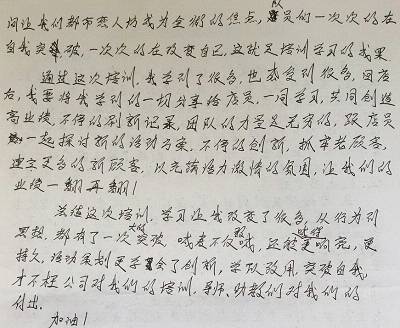 间让我们都市恋人场成为全场的焦点，队员们一次次的在
自我突破，一次次的在改变自己，这就是培训学习的成果
通过这次培训，我学到了很多，也感受到很多，回店
后，我要将我学到的一切分享给店员，一同学习，共同创造
高业绩，不停的刷新记录，团队的力量是无穷的，跟店员
一起探讨新的活动方案，不停的创新，抓牢老顾客，
建立更多的新顾客，以充满活力激情的氛围，让我们的
业绩一翻再翻！
总结这次培训，学习让我改变了很多，从行为到
思想，都有了一次大的突破，喊麦不仅敢喊，还能喊得更响亮，更
持久，活动策划更学会了创新，学以致用，突破自我，
才不枉公司对我们的培训，导师、助教们对我们的
付出。
加油！